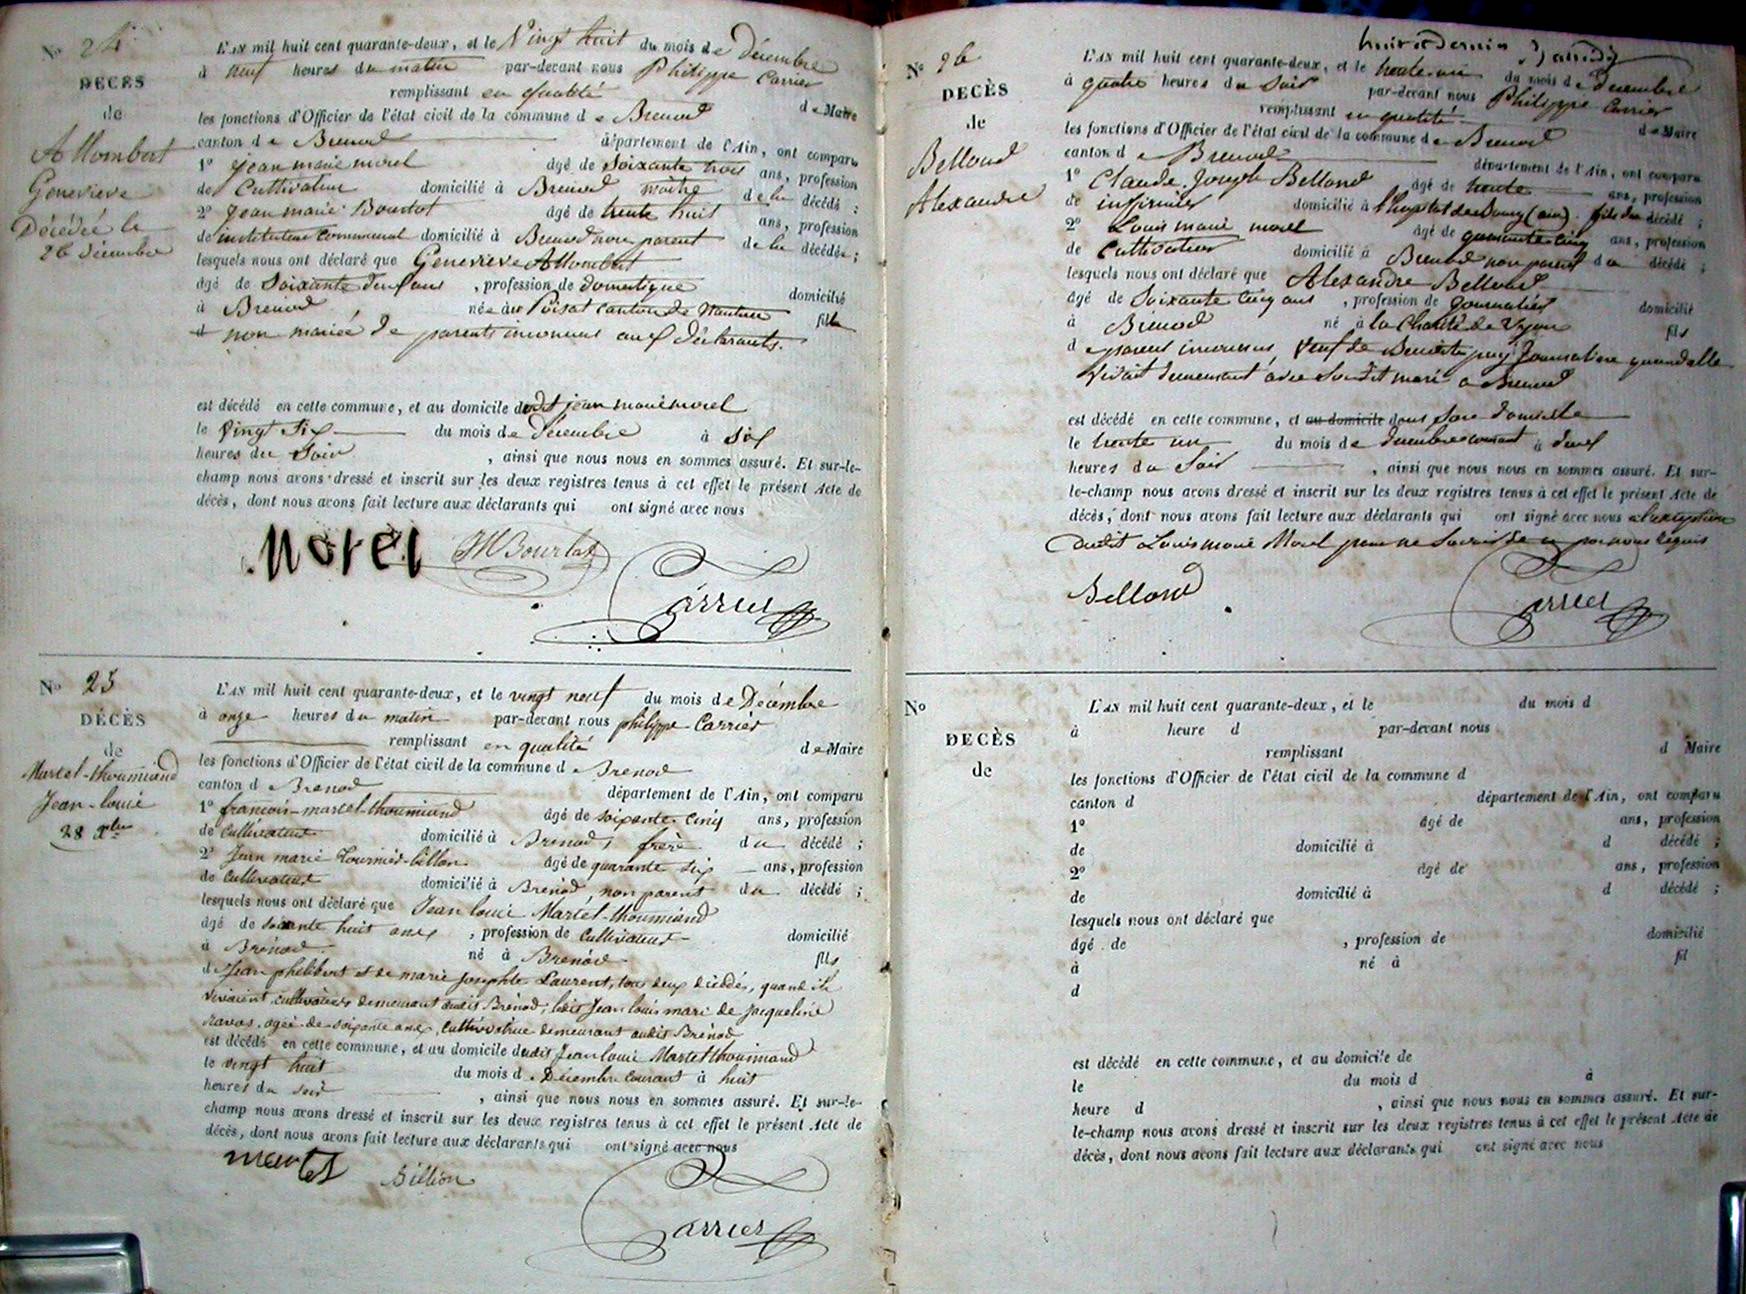 No 24
DÉCÈS
de
Allombert
Genevieve
Décédée le
26 décembre
L'AN mil huit cent quarante-deux, et le Vingt huit du mois de décembre
à neuf heures du matin par-devant nous Philippe Carrier
remplissant en qualité de Maire
les fonctions d'Officier de l'état civil de la commune de Brenod
canton de Brenod département de l'Ain, ont comparu
1° Jean marie morel âgé de Soixante trois ans, profession
de Cultivateur domicilié à Brenod maitre de la décédé ;
2° Jean marie Bourlot âgé de trente huit ans, profession
de instituteur communal domicilié à Brenod non parent de la décédée ;
lesquels nous ont déclaré que Genevieve Allombert
âgé de Soixante deux ans , profession de domestique domicilié
à Brenod née au Poisat canton de Nantua fille
d non mariée de parents inconnus aux déclarants.
est décédé en cette commune, et au domicile dudit jean marie morel
le Vingt Six du mois de Décembre à Six
heures du Soir , ainsi que nous nous en sommes assuré. Et sur-le-
champ nous avons dressé et inscrit sur les deux registres tenus à cet effet le présent Acte de
décès, dont nous avons fait lecture aux déclarants qui ont signé avec nous
Morel JM Bourlot
Carrier
No 25
DÉCÈS
de
Martel-thoumiand
Jean-louis
28 Xbre
L'AN mil huit cent quarante-deux, et le vingt neuf du mois de Décembre
à onze heures du matin par-devant nous philippe Carrier
remplissant en qualité de Maire
les fonctions d'Officier de l'état civil de la commune de Brenod
canton de Brenod département de l'Ain, ont comparu
1° françois martel-thoumiand âgé de soixante cinq ans, profession
de cultivateur domicilié à Brenod, frère du décédé ;
2° Jean marie Tournier-billon âgé de quarante six ans, profession
de cultivateur domicilié à Brénod, non parent du décédé ;
lesquels nous ont déclaré que Jean louis Martel-thoumiand
âgé de soixante huit ans , profession de cultivateur domicilié
à Brénod né à Brénod fils
de Jean philibert et de marie Josephte Laurent, tous deux décédés, quand ils
vivaient cultivateurs demeurant audit Brénod, ledit Jean louis mari de Jacqueline
Ravas, agée de soixante ans, cultivatrice demeurant audit Brénod
est décédé en cette commune, et au domicile dudit Jean louis Martel thoumiand
le vingt huit du mois de Décembre courant à huit
heures du soir , ainsi que nous nous en sommes assuré. Et sur-le-
champ nous avons dressé et inscrit sur les deux registres tenus à cet effet le présent Acte de
décès, dont nous avons fait lecture aux déclarants qui ont signé avec nous
martel Billion
Carrier
No 26
DÉCÈS
de
Bellond
Alexandre
huit et dernier
L'AN mil huit cent quarante-deux, et le trente un du mois de décembre
à quatre heures du Soir par-devant nous Philippe Carrier
remplissant en qualité de Maire
les fonctions d'Officier de l'état civil de la commune de Brenod
canton de Brenod département de l'Ain, ont comparu
1° Claude Joseph Bellond âgé de trente ans, profession
de infirmier domicilié à l'hopital de Bourg (ain) fils du décédé ;
2° Louis marie morel âgé de quarante cinq ans, profession
de Cultivateur domicilié à Brenod non parent du décédé ;
lesquels nous ont déclaré que Alexandre Bellond
âgé de Soixante cinq ans , profession de journalier domicilié
à Brenod né à la Charité de Dijon fils
de parens inconnus, Veuf de Benoite puy Journaliere quand elle
vivait demeurant avec Son dit mari a Brenod
est décédé en cette commune, et au domicile dans Son domicile
le trente un du mois de decembre courant à deux
heures du Soir , ainsi que nous nous en sommes assuré. Et sur-
le-champ nous avons dressé et inscrit sur les deux registres tenus à cet effet le présent Acte de
décès, dont nous avons fait lecture aux déclarants qui ont signé avec nous a l'exception
dudit Louis marie Morel pour ne Savoir de ce par nous requis
Bellond
Carrier
No
DÉCÈS
de
L'AN mil huit cent quarante-deux, et le du mois d
à heure d par-devant nous
remplissant d Maire
les fonctions d'Officier de l'état civil de la commune d
canton d département de l'Ain, ont comparu
1° âgé de ans, profession
de domicilié à d décédé ;
2° âgé de ans, profession
de domicilié à d décédé ;
lesquels nous ont déclaré que
âgé de , profession de domicilié
à né à fil
d
est décédé en cette commune, et au domicile de
le du mois d à
heure d , ainsi que nous nous en sommes assuré. Et sur-
le-champ nous avons dressé et inscrit sur les deux registres tenus à cet effet le présent Acte de
décès, dont nous avons fait lecture aux déclarants qui ont signé avec nous